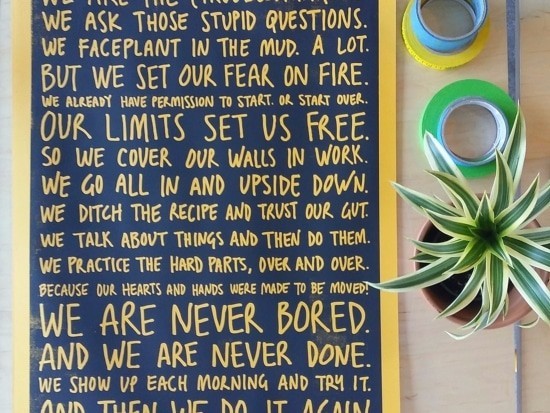 WE ASK THOSE STUPID QUESTIONS.
WE FACEPLANT IN THE MUD. A LOT.
BUT WE SET OUR FEAR ON FIRE.
WE ALREADY HAVE PERMISSION TO START. OR START OVER.
OUR LIMITS SET US FREE.
SO WE COVER OUR WALLS IN WORK.
WE GO ALL IN AND UPSIDE DOWN.
WE DITCH THE RECIPE AND TRUST OUR GUT.
WE TALK ABOUT THINGS AND THEN DO THEM.
WE PRACTICE THE HARD PARTS, OVER AND OVER.
BECAUSE OUR HEARTS AND HANDS WERE MADE TO BE MOVED!
WE ARE NEVER BORED.
AND WE ARE NEVER DONE.
WE SHOW UP EACH MORNING AND TRY IT.
AND THEN WE DO IT AGAIN